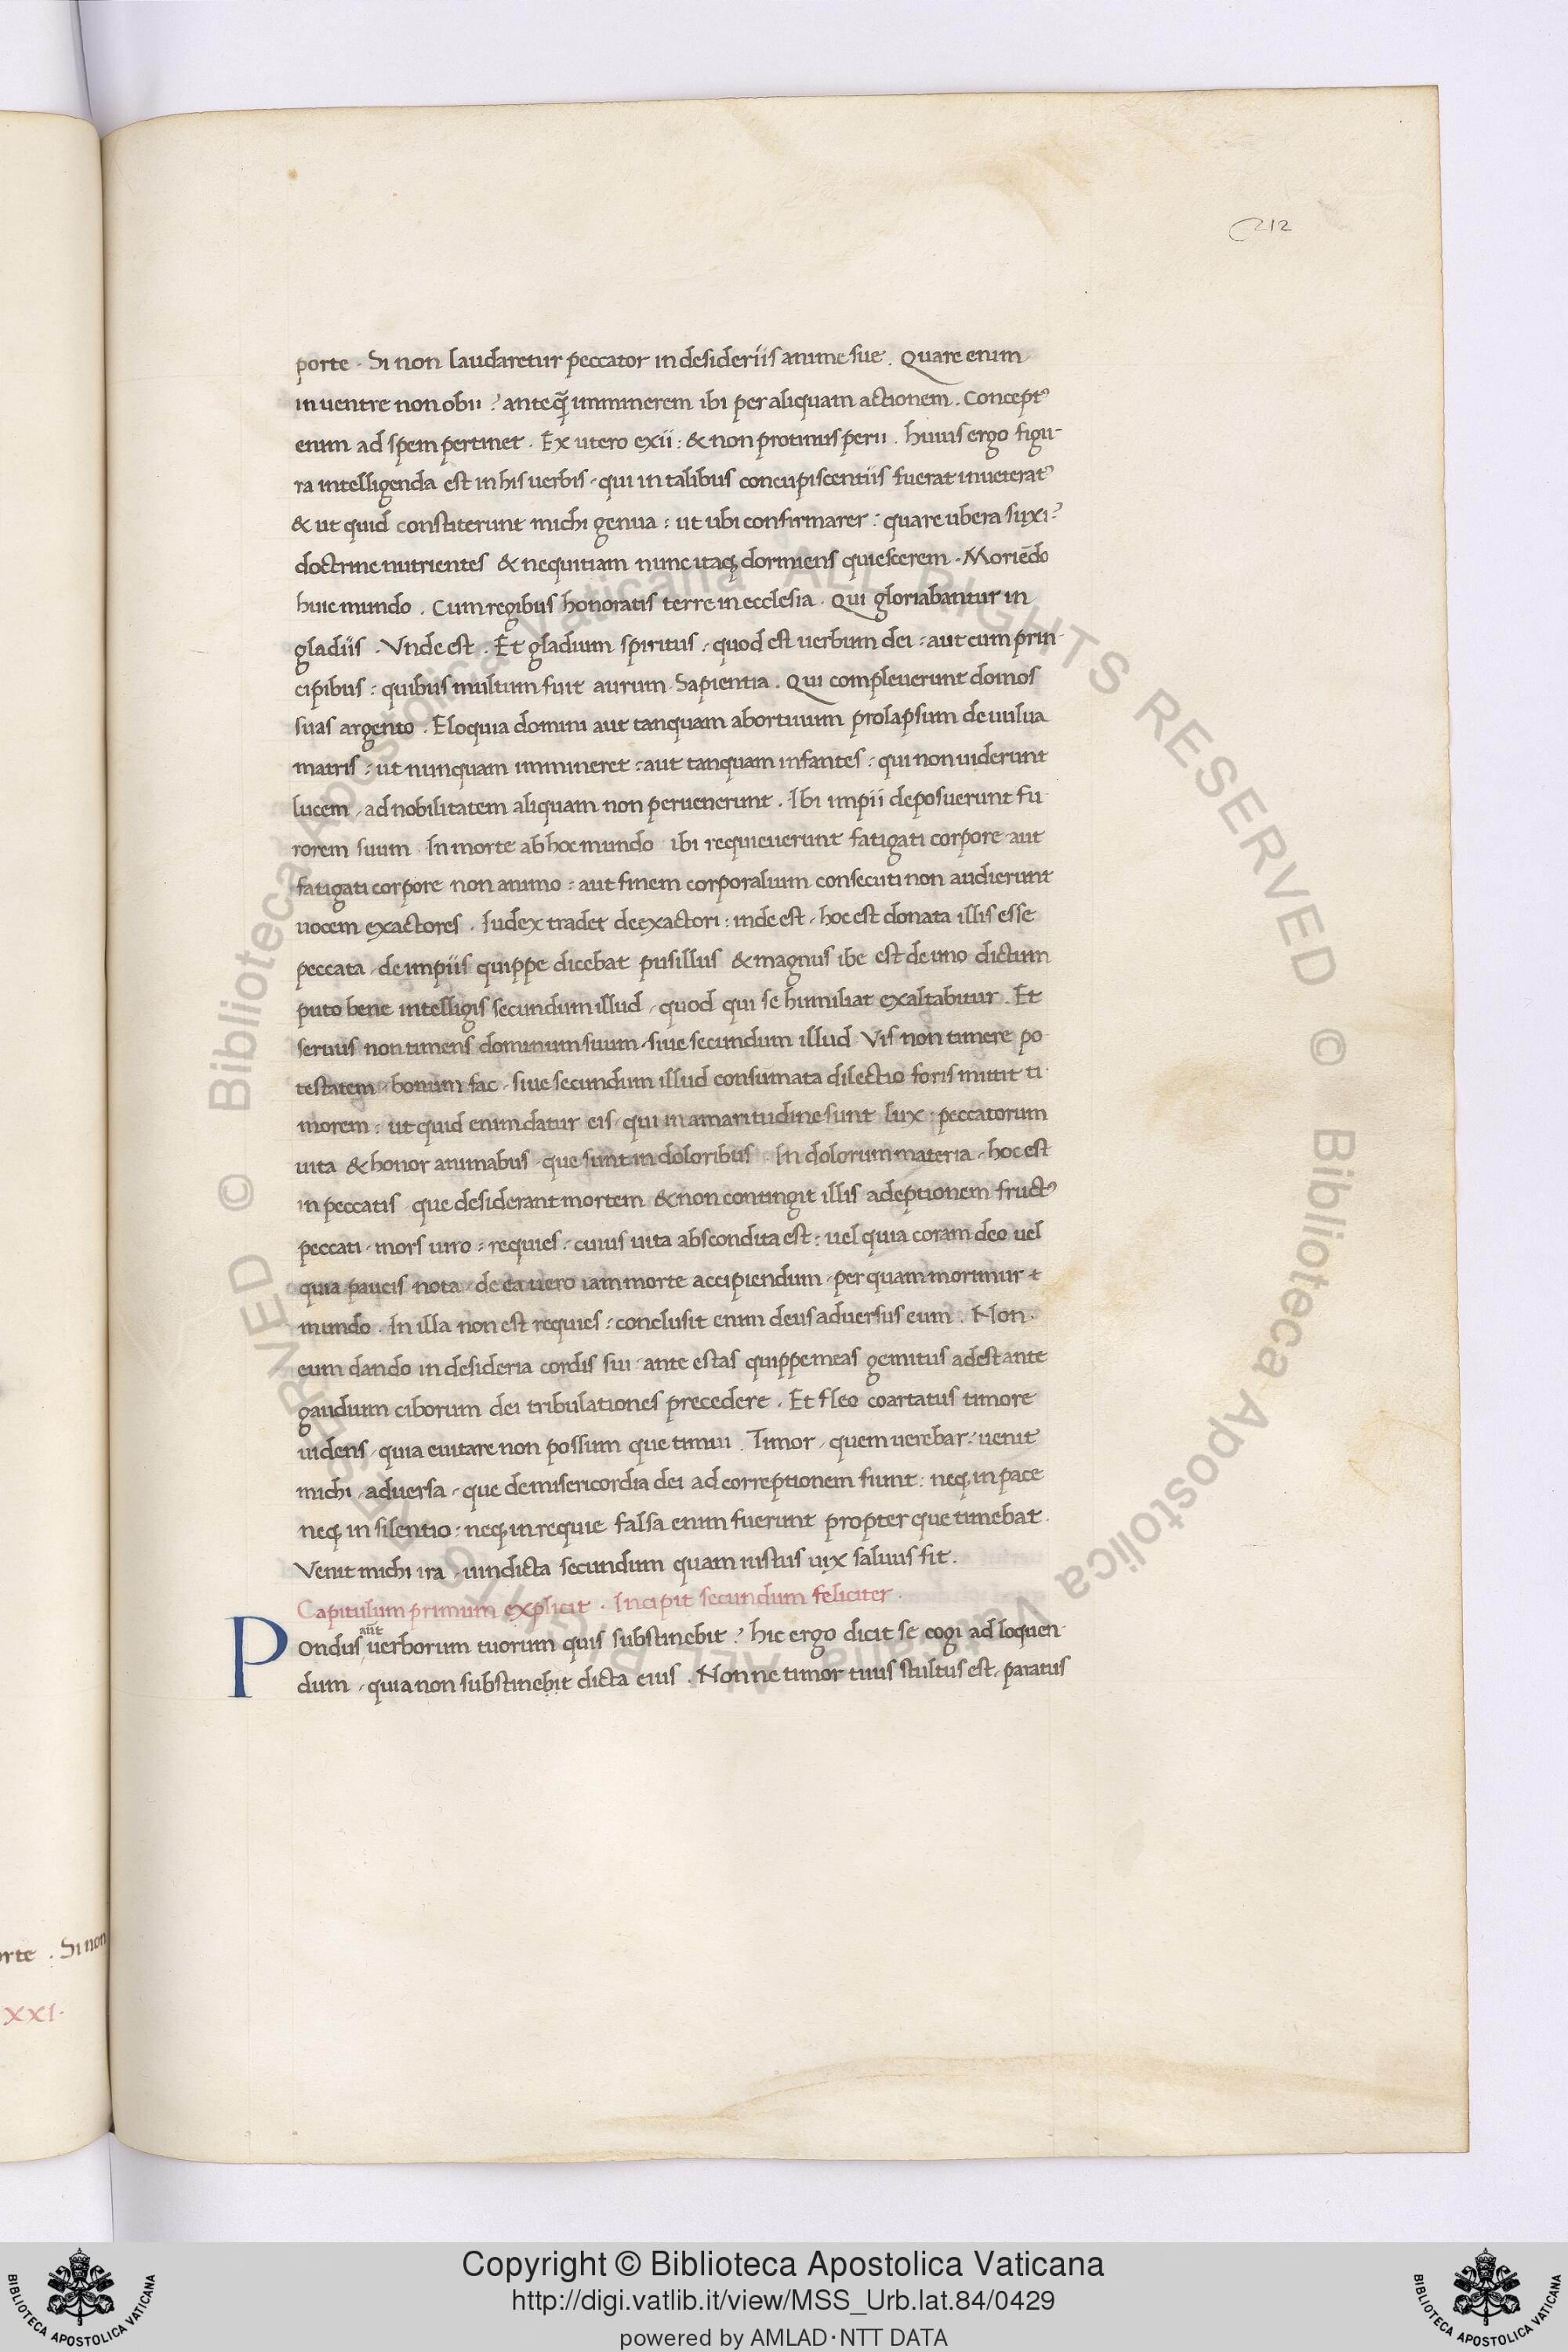 212
porte . Si non laudaretur peccator in desideriis anime sue . Quare enim
in uentre non obii ? anteq̃ imminerem ibi per aliquam actionem . Conceptꝰ
enim ad spem pertinet . Ex utero exii : & non protinus perii . huius ergo figu-
ra intelligenda est in his uerbis , qui in talibus concupiscentiis fuerat inueteratꝰ
& ut quid constiterunt michi genua : ut ubi confirmarer : quare ubera suxi ?
doctrine nutrientes & nequitiam nunc itaq; dormiens quiescerem . Moriẽdo
huic mundo . Cum regibus honoratis terre in ecclesia . Qui gloriabantur in
gladiis . Vnde est . Et gladium spiritus , quod est uerbum dei : aut cum prin-
cipibus : quibus multum fuit aurum Sapientia . Qui compleuerunt domos
suas argento . Eloquia domini aut tanquam abortiuum prolapsum de uulua
matris : ut nunquam immineret : aut tanquam infantes : qui non uiderunt
lucem , ad nobilitatem aliquam non peruenerunt . Ibi impii deposuerunt fu-
rorem suum . In morte ab hoc mundo ibi requieuerunt fatigati corpore aut
fatigati corpore non animo : aut finem corporalium consecuti non audierunt
uocem exactores . Iudex tradet de exactori : inde est , hoc est donata illis esse
peccata , de impiis quippe dicebat pusillus & magnus ibe est de uno dictum
puto bene intelligis secundum illud , quod qui se humiliat exaltabitur . Et
seruus non timens dominum suum , siue secundum illud Vis non timere po-
testatem , bonum fac , siue secundum illud consumata dilectio foris mittit ti-
morem : ut quid enim datur eis , qui in amaritudine sunt lux : peccatorum
uita & honor animabus , que sunt in doloribus . In dolorum materia , hoc est
in peccatis , que desiderant mortem & non contingit illis adeptionem fructꝰ
peccati , mors uiro : requies : cuius uita abscondita est : uel quia coram deo uel
quia paucis nota , de ea uero iam morte accipiendum , per quam morimur
mundo . In illa non est requies : conclusit enim deus aduersus eum . Non
eum dando in desideria cordis sui , ante estas quippe meas gemitus adest ante
gaudium ciborum dei tribulationes precedere . Et fleo coartatus timore
uidens , quia euitare non possum que timui . Timor , quem uerebar : uenit
michi , aduersa , que de misericordia dei ad correptionem fiunt : neq; in pace
neq; in silentio : neq; in requie falsa enim fuerunt propter que timebat .
Venit michi ira , uindicta secundum quam iustus uix saluus fit .
Capitulum primum explicit . Incipit secundum feliciter .
Pondus aũt uerborum tuorum quis substinebit ? hic ergo dicit se cogi ad loquen-
dum , quia non substinebit dicta eius . Nonne timor tuus stultus est , paratus
orte . Si non
XXI .
© Biblioteca Apostolica Vaticana ALL RIGHTS RESERVED
© Biblioteca Apostolica Vaticana ALL RIGHTS RESERVED
Copyright © Biblioteca Apostolica Vaticana
http://digi.vatlib.it/view/MSS_Urb.lat.84/0429
powered by AMLAD·NTT DATA
BIBLIOTECA APOSTOLICA VATICANA
BIBLIOTECA APOSTOLICA VATICANA